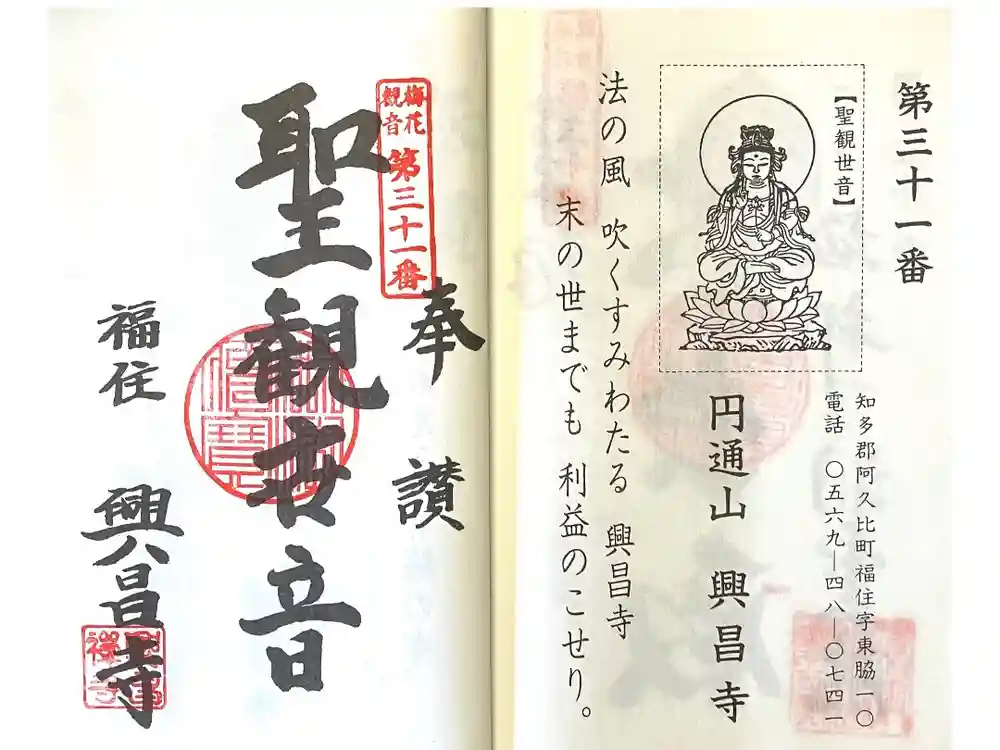 第三十一番
【聖観世音】
知多郡阿久比町福住字東脇一〇
電話 〇五六九―四八―〇七四一
円通山 興昌寺
法の風 吹くすみわたる 興昌寺
末の世までも 利益のこせり。
奉 讃
梅花
観音
第三十一番
聖観世音
福住 興昌寺